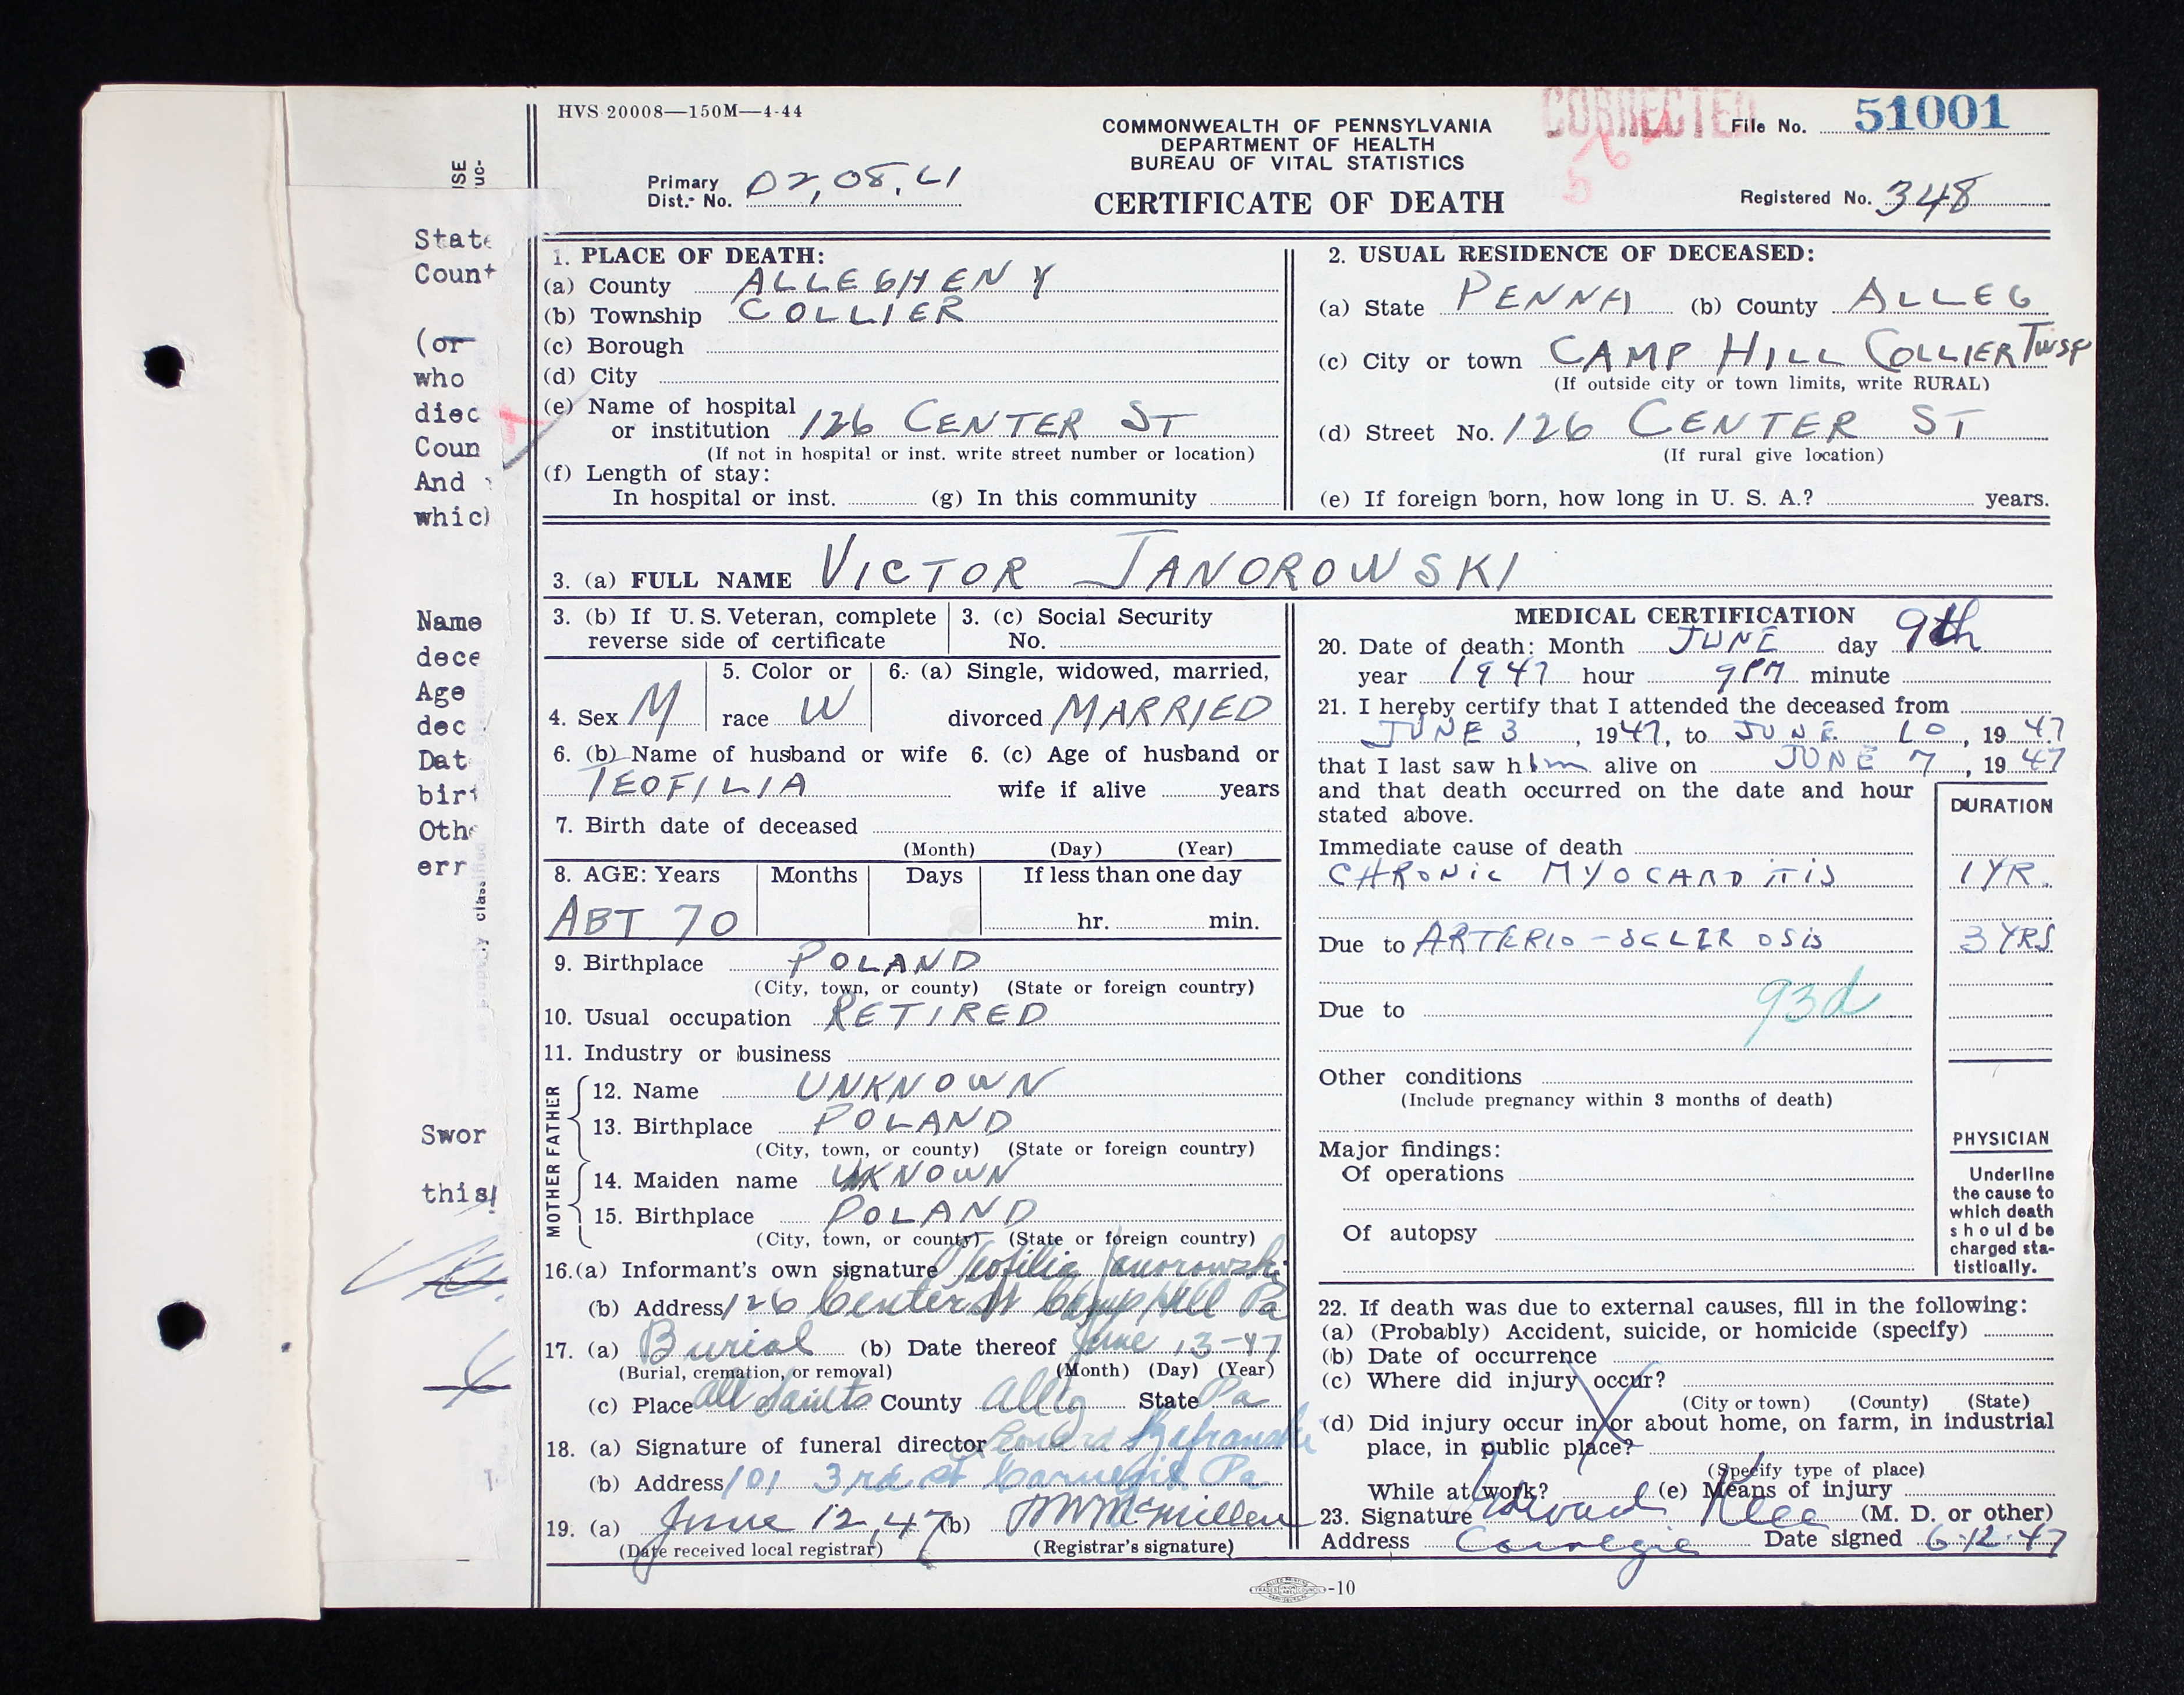 HVS 20008—150M—4-44
COMMONWEALTH OF PENNSYLVANIA
DEPARTMENT OF HEALTH
BUREAU OF VITAL STATISTICS
CERTIFICATE OF DEATH
CORRECTED
File No. 51001
Primary Dist. No. 02,08,41
Registered No. 348
1. PLACE OF DEATH:
(a) County ALLEGHENY
(b) Township COLLIER
(c) Borough
(d) City
(e) Name of hospital
or institution 126 CENTER ST
(If not in hospital or inst. write street number or location)
(f) Length of stay:
In hospital or inst. (g) In this community
2. USUAL RESIDENCE OF DECEASED:
(a) State PENNA (b) County ALLEG
(c) City or town CAMP HILL COLLIER TWSP
(If outside city or town limits, write RURAL)
(d) Street No. 126 CENTER ST
(If rural give location)
(e) If foreign born, how long in U. S. A.? years.
3. (a) FULL NAME VICTOR JANOROWSKI
3. (b) If U. S. Veteran, complete
reverse side of certificate
3. (c) Social Security
No.
4. Sex M
5. Color or
race W
6. (a) Single, widowed, married,
divorced MARRIED
6. (b) Name of husband or wife 6. (c) Age of husband or
TEOFILIA wife if alive years
7. Birth date of deceased
(Month) (Day) (Year)
8. AGE: Years Months Days If less than one day
ABT 70 hr. min.
9. Birthplace POLAND
(City, town, or county) (State or foreign country)
10. Usual occupation RETIRED
11. Industry or business
FATHER
12. Name UNKNOWN
13. Birthplace POLAND
(City, town, or county) (State or foreign country)
MOTHER
14. Maiden name UNKNOWN
15. Birthplace POLAND
(City, town, or county) (State or foreign country)
16.(a) Informant's own signature Teofilia Janorowski
(b) Address 126 Center St Camp Hill Pa
17. (a) Burial (b) Date thereof June 13-47
(Burial, cremation, or removal) (Month) (Day) (Year)
(c) Place All Saints County Alleg State Pa
18. (a) Signature of funeral director
(b) Address 101 3rd. St Carnegie Pa
19. (a) June 12, 47 (b) McMillen
(Date received local registrar) (Registrar's signature)
MEDICAL CERTIFICATION
20. Date of death: Month JUNE day 9th
year 1947 hour 9PM minute
21. I hereby certify that I attended the deceased from
JUNE 3, 1947, to JUNE 10, 1947
that I last saw him alive on JUNE 7, 1947
and that death occurred on the date and hour
stated above.
DURATION
Immediate cause of death
CHRONIC MYOCARDITIS 1 YR.
Due to ARTERIO-SCLEROSIS 3 YRS.
93d
Due to
Other conditions
(Include pregnancy within 3 months of death)
Major findings:
Of operations
Of autopsy
PHYSICIAN
Underline
the cause to
which death
should be
charged sta-
tistically.
22. If death was due to external causes, fill in the following:
(a) (Probably) Accident, suicide, or homicide (specify)
(b) Date of occurrence
(c) Where did injury occur?
(City or town) (County) (State)
(d) Did injury occur in or about home, on farm, in industrial
place, in public place?
(Specify type of place)
While at work? (e) Means of injury
23. Signature Edward Klee (M. D. or other)
Address Carnegie Date signed 6-12-47
-10
State
Count
(or
who
died
Coun
And
which
Name
dece
Age
dec
Dat
birt
Othe
err
Swor
this